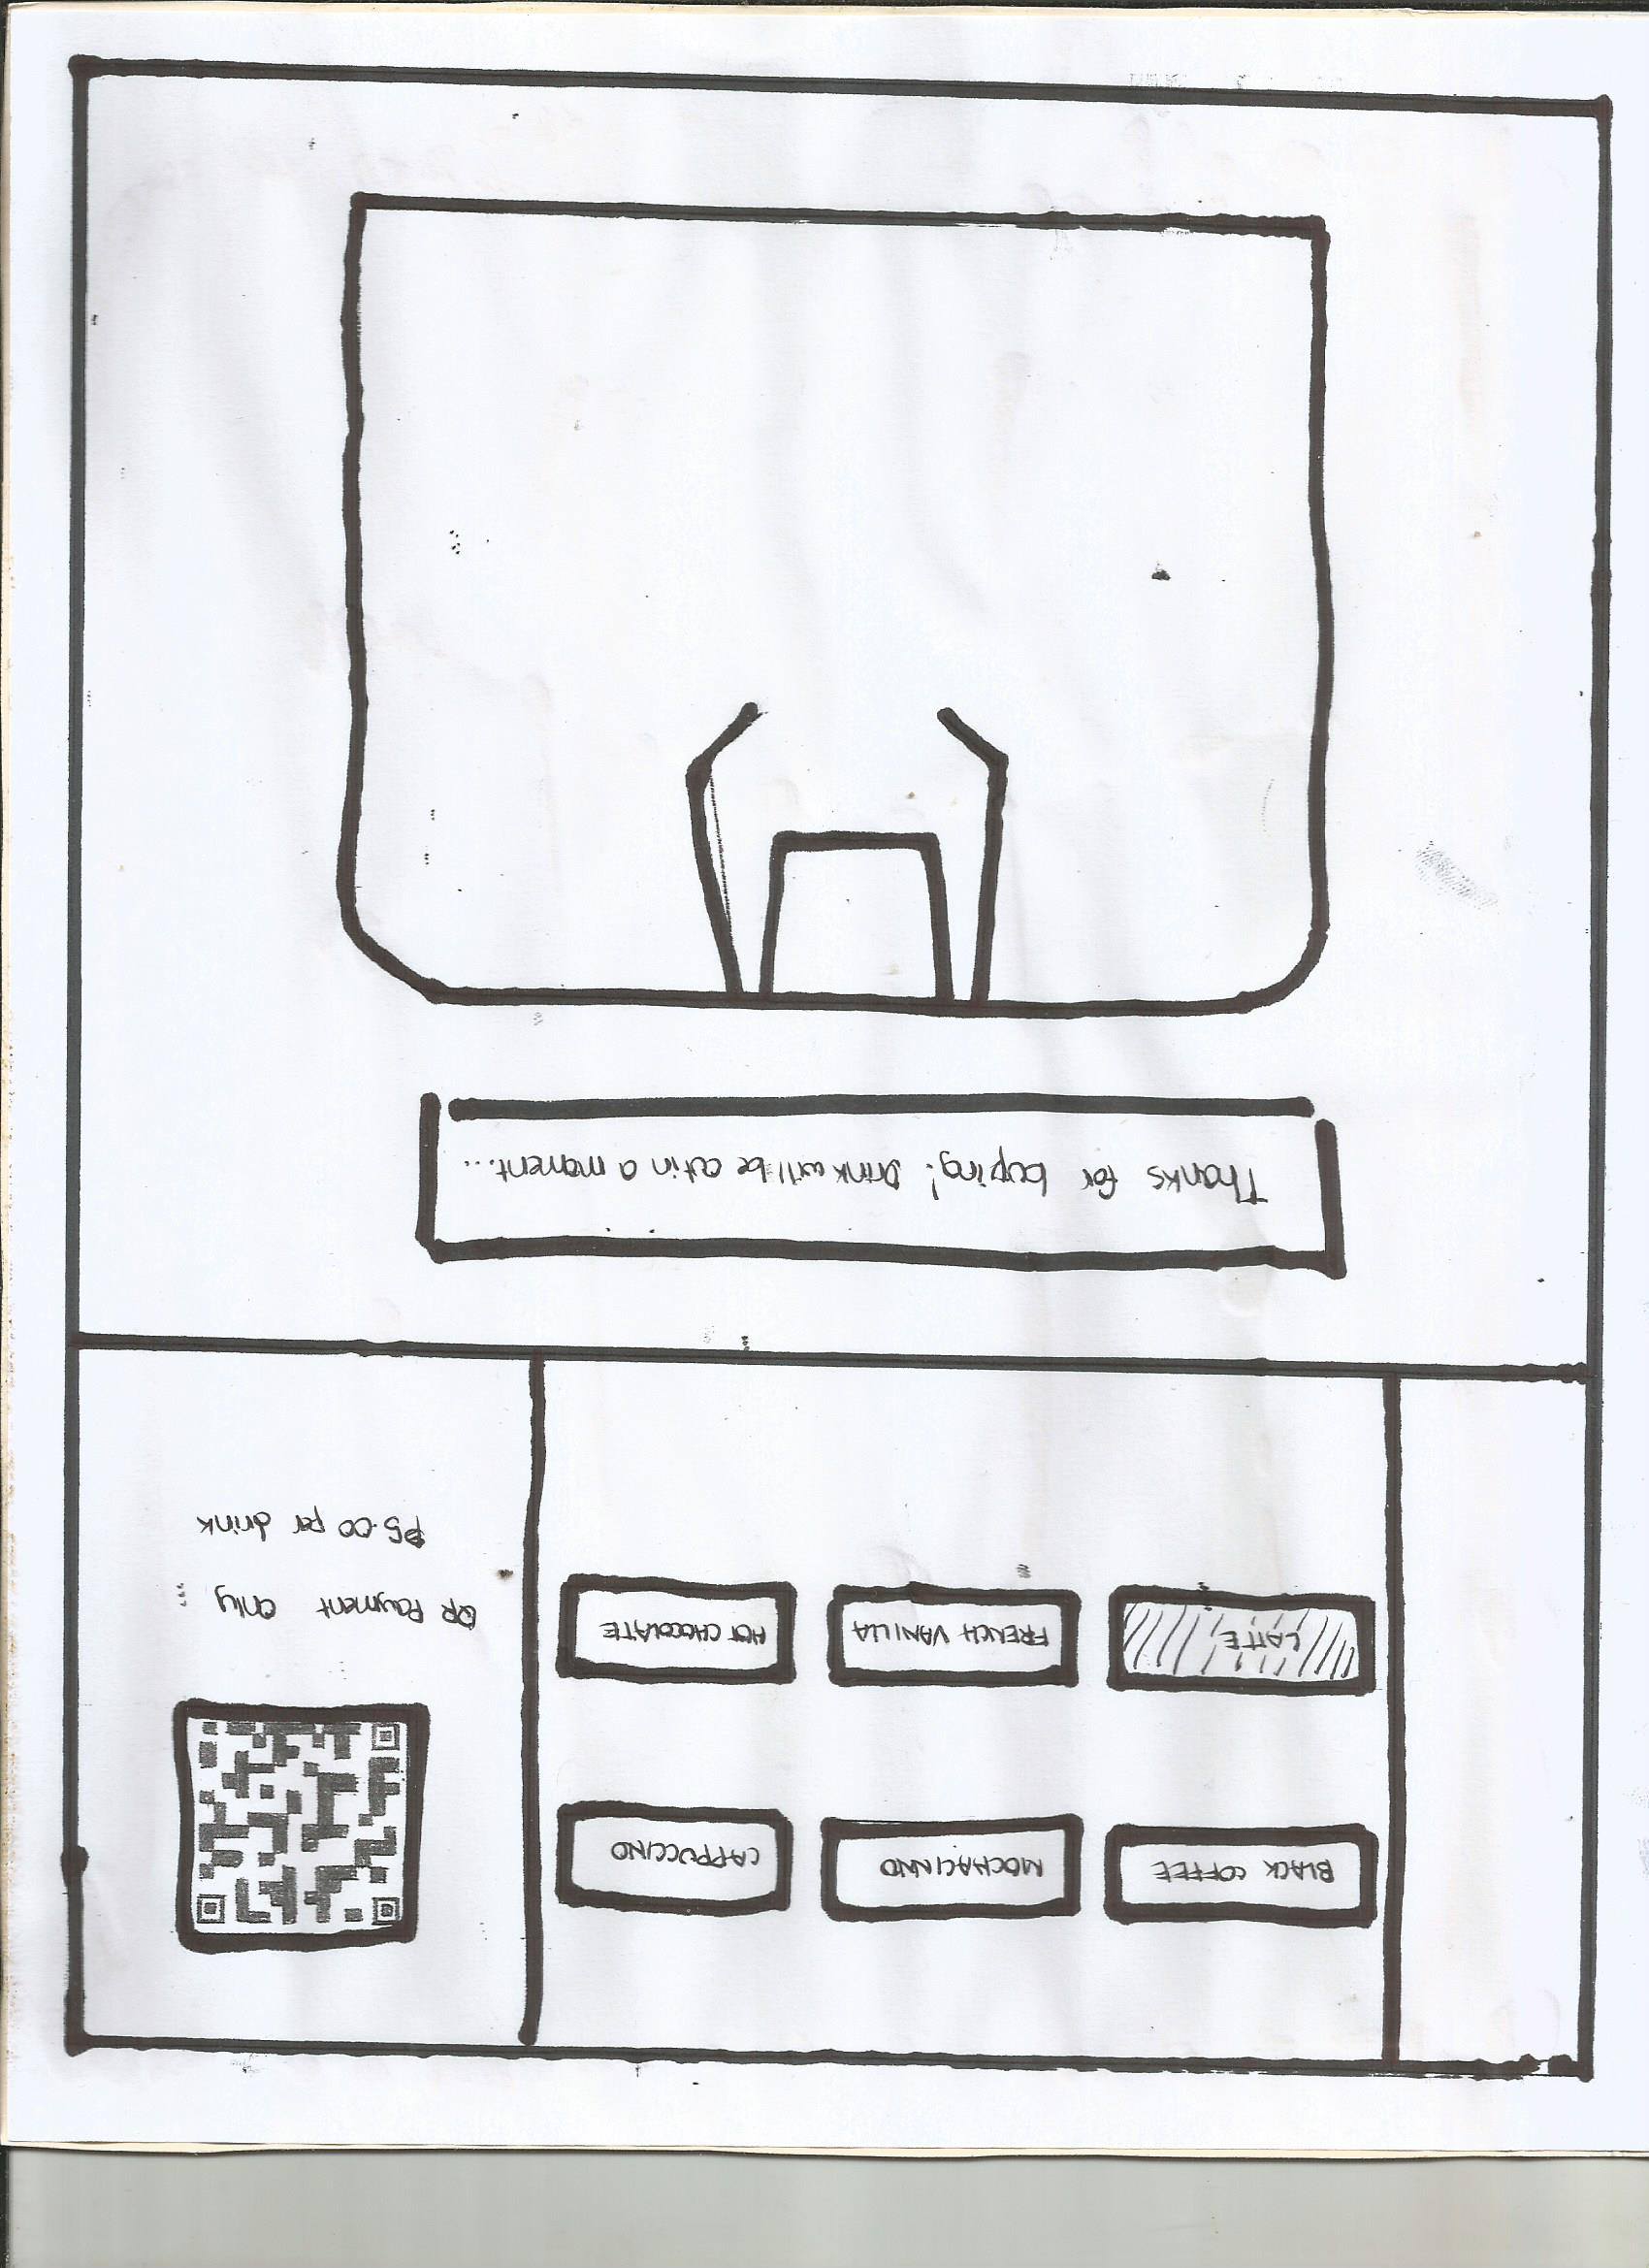 BLACK COFFEE
MOCHACINNO
CAPPUCCINO
LATTE
FRENCH VANILLA
HOT CHOCOLATE
QR Payment only :
₱5.00 per drink
Thanks for buying! Drink will be out in a moment...